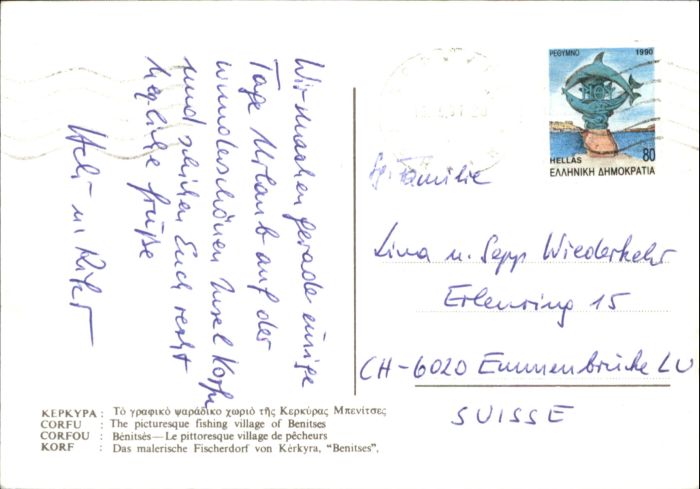 Wir machen gerade einige
Tage Urlaub auf der
wunderschönen Insel Korfu
und schicken Euch recht
herzliche Grüße
Heli u
ΡΕΘΥΜΝΟ 1990
HELLAS 80
ΕΛΛΗΝΙΚΗ ΔΗΜΟΚΡΑΤΙΑ
Familie
Lina u. Sepp Wiederkehr
Erlenring 15
CH-6020 Emmenbrücke LU
SUISSE
ΚΕΡΚΥΡΑ : Τὸ γραφικὸ ψαράδικο χωριὸ τῆς Κερκύρας Μπενίτσες
CORFU : The picturesque fishing village of Benitses
CORFOU : Bénitsès—Le pittoresque village de pêcheurs
KORF : Das malerische Fischerdorf von Kérkyra, "Benitses",